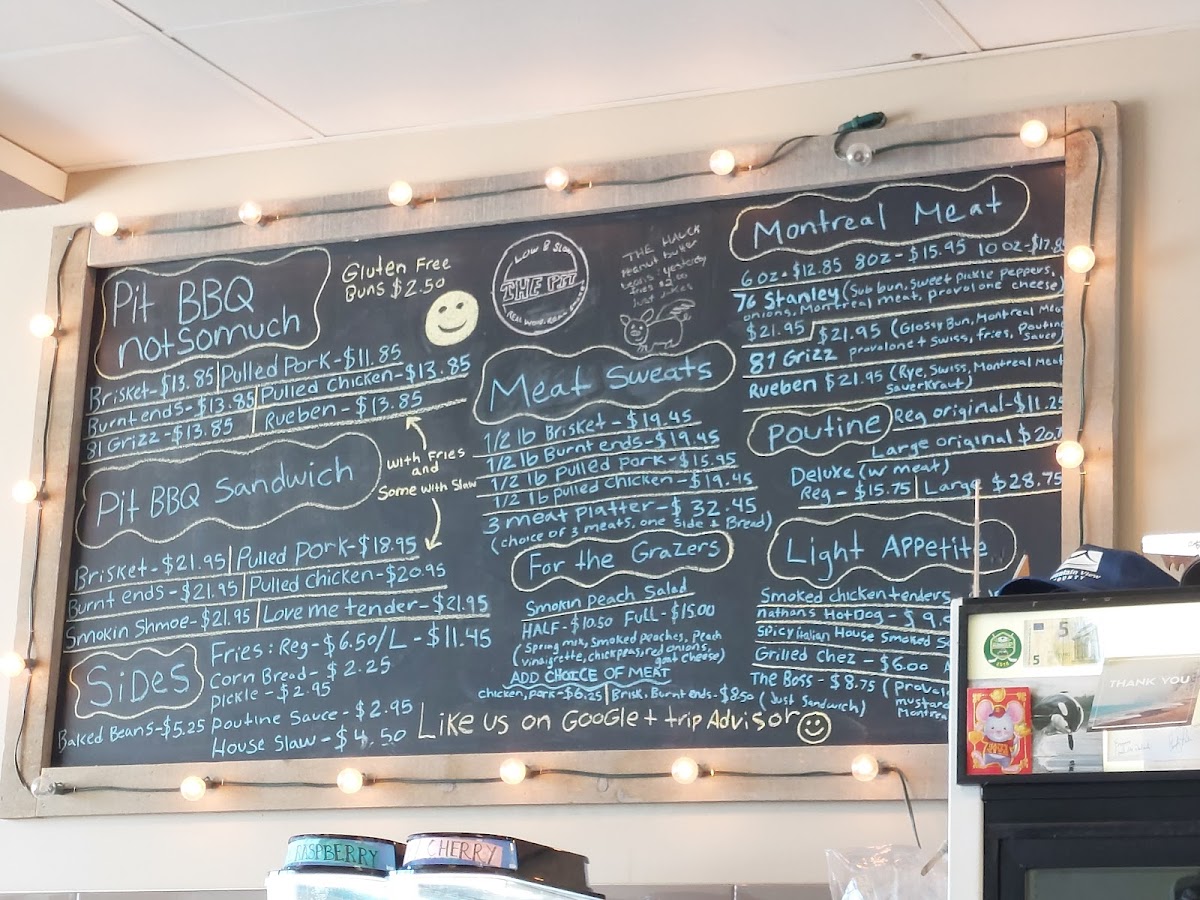 Pit BBQ
not so much
Gluten Free
Buns $2.50
Brisket-$13.85 | Pulled Pork-$11.85
Burnt ends-$13.85 | Pulled Chicken-$13.85
81 Grizz-$13.85 | Rueben-$13.85
with Fries
and
Some with Slaw
Pit BBQ Sandwich
Brisket-$21.95 | Pulled Pork-$18.95
Burnt ends-$21.95 | Pulled Chicken-$20.95
Smokin Shmoe-$21.95 | Love me tender-$21.95
Sides
Fries: Reg-$6.50/L-$11.45
Corn Bread-$2.25
Pickle-$2.95
Baked Beans-$5.25
Poutine Sauce-$2.95
House Slaw-$4.50
LOW & SLOW
THE PIT
THE HAWCK
Peanut butter
Meat Sweats
1/2 lb Brisket-$19.45
1/2 lb Burnt ends-$19.45
1/2 lb Pulled Pork-$15.95
1/2 lb Pulled Chicken-$19.45
3 meat platter-$32.45
(choice of 3 meats, one side + Bread)
For the Grazers
Smokin Peach Salad
HALF-$10.50 Full-$15.00
(Spring mix, Smoked peaches, Peach
vinaigrette, chickpeas, red onions,
goat cheese)
ADD CHOICE OF MEAT
chicken, pork-$6.25 | Brisk, Burnt ends-$8.50
Like us on Google + trip Advisor
Montreal Meat
6oz-$12.85 8oz-$15.95 10oz-$17.8
76 Stanley (Sub bun, Sweet pickle peppers,
onions, Montreal meat, provolone cheese)
$21.95
$21.95 (Glossy Bun, Montreal Meat
81 Grizz provolone + Swiss, fries, Poutine
Sauce)
Rueben $21.95 (Rye, Swiss, Montreal Meat
Sauerkraut)
Poutine
Reg original-$11.25
Large original $20.7
Deluxe (w meat)
Reg-$15.75 | Large $28.75
Light Appetite
Smoked chicken tenders
Nathans HotDog-$9.9
Spicy Italian House Smoked S
Grilled Chez-$6.00
The Boss-$8.75 (provol
(Just Sandwich) mustard
Montrea
Mountain View
COUNTY
5
THANK YOU
RASPBERRY
CHERRY